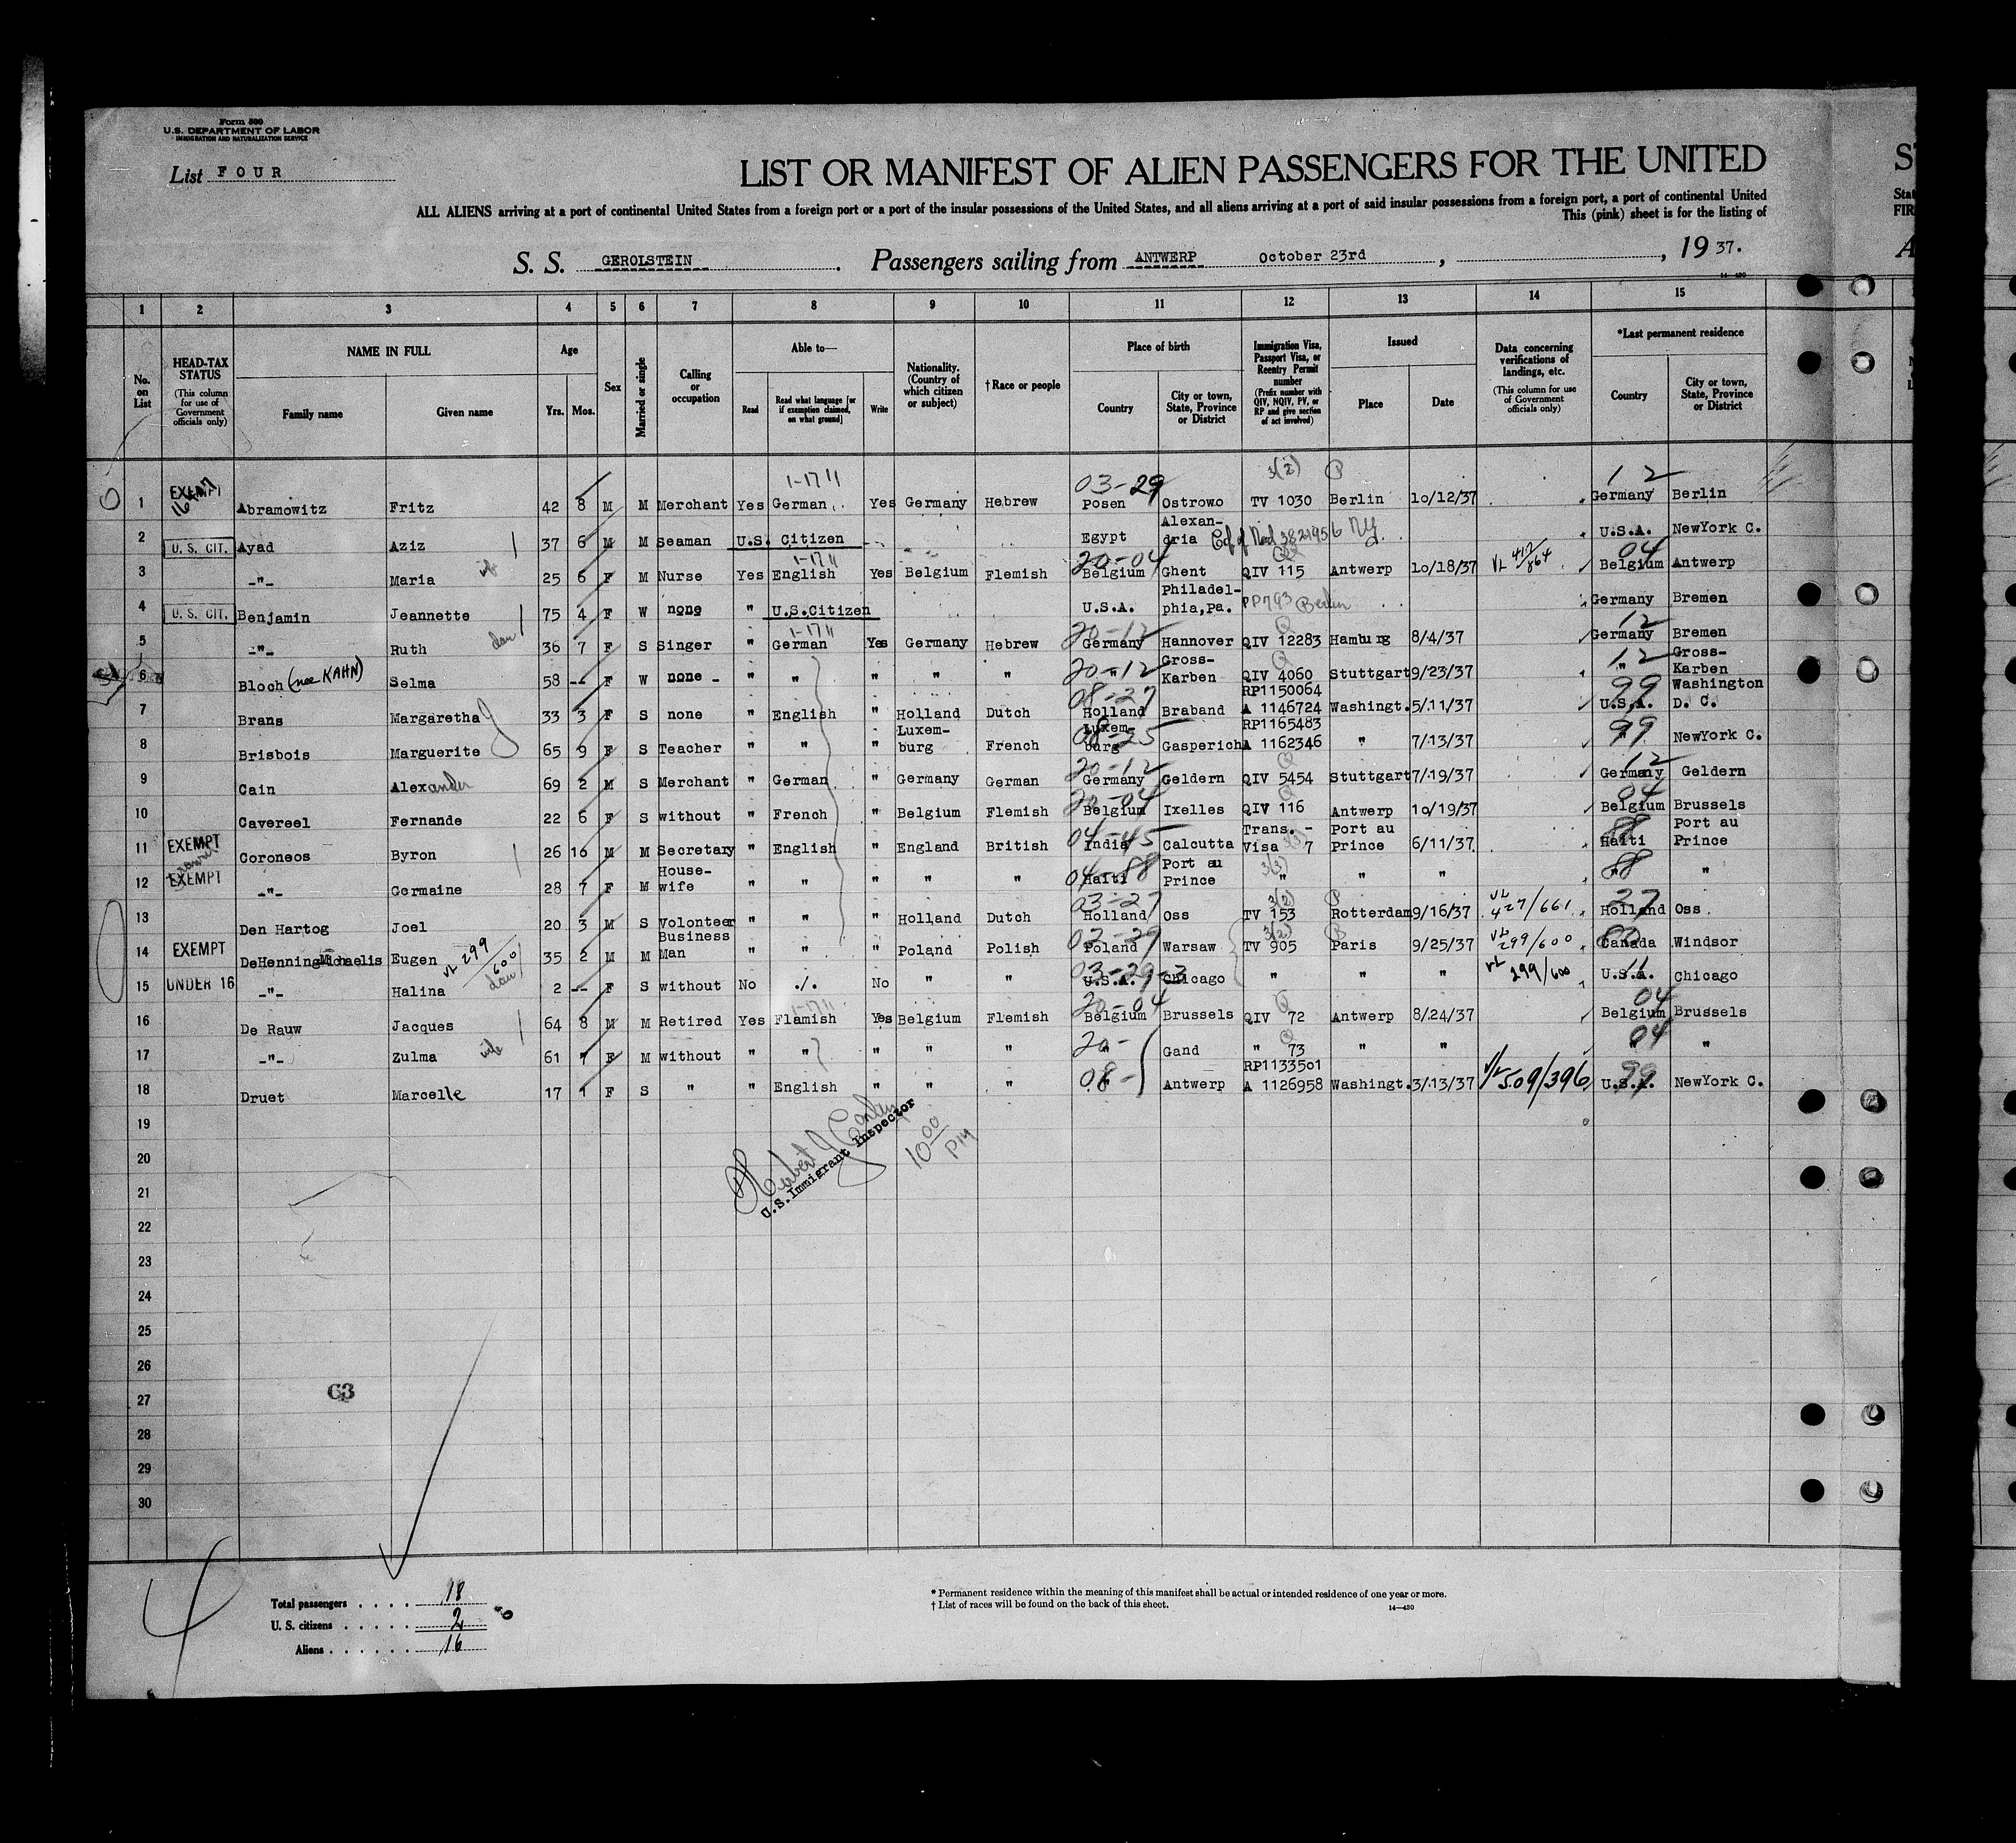 Form 500
U.S. DEPARTMENT OF LABOR
IMMIGRATION AND NATURALIZATION SERVICE
List FOUR
LIST OR MANIFEST OF ALIEN PASSENGERS FOR THE UNITED
ALL ALIENS arriving at a port of continental United States from a foreign port or a port of the insular possessions of the United States, and all aliens arriving at a port of said insular possessions from a foreign port, a port of continental United
This (pink) sheet is for the listing of
S. S. GEROLSTEIN. Passengers sailing from ANTWERP October 23rd, , 19 37.
14-430
1 2 3 4 5 6 7 8 9 10 11 12 13 14 15
No. on List
HEAD-TAX STATUS (This column for use of Government officials only)
NAME IN FULL Family name Given name
Age Yrs. Mos.
Sex
Married or single
Calling or occupation
Able to— Read Read what language [or if exemption claimed, on what ground] Write
Nationality. (Country of which citizen or subject)
†Race or people
Place of birth Country City or town, State, Province or District
Immigration Visa, Passport Visa, or Reentry Permit number (Prefix number with QIV, NQIV, PV, or RP and give section of act involved)
Issued Place Date
Data concerning verifications of landings, etc. (This column for use of Government officials only)
*Last permanent residence Country City or town, State, Province or District
1-17 11 03-29 3(2) P 12
1 EXEMPT Abramowitz Fritz 42 8 M M Merchant Yes German Yes Germany Hebrew Posen Ostrowo TV 1030 Berlin 10/12/37 Germany Berlin
2 U. S. CIT. Ayad Aziz 37 6 M M Seaman U.S. Citizen Egypt Alexan-dria NY U.S.A. NewYork C.
1-17 11 20-04 04
3 -"- Maria wife 25 6 F M Nurse Yes English Yes Belgium Flemish Belgium Ghent QIV 115 Antwerp 10/18/37 VL 412/864 Belgium Antwerp
4 U. S. CIT. Benjamin Jeannette 75 4 F W none " U.S.Citizen U.S.A. Philadel-phia,Pa. PP793 Berlin Germany Bremen
1-17 11 20-12 Q 12
5 -"- Ruth dau 36 7 F S Singer " German Yes Germany Hebrew Germany Hannover QIV 12283 Hamburg 8/4/37 Germany Bremen
20-12 Q 12
6 Bloch (nee KAHN) Selma 58 -- F W none - " " " " " " Gross-Karben QIV 4060 Stuttgart 9/23/37 " Gross-Karben
08-27 99
7 Brans Margaretha 33 3 F S none " English " Holland Dutch Holland Braband RP1150064 A 1146724 Washingt. 5/11/37 U.S.A. Washington D. C.
08-25 99
8 Brisbois Marguerite 65 9 F S Teacher " " " Luxem-burg French Luxem-burg Gasperich RP1165483 A 1162346 " 7/13/37 " NewYork C.
20-12 Q 12
9 Cain Alexander 69 2 M S Merchant " German " Germany German Germany Geldern QIV 5454 Stuttgart 7/19/37 Germany Geldern
20-04 Q 04
10 Cavereel Fernande 22 6 F S without " French " Belgium Flemish Belgium Ixelles QIV 116 Antwerp 10/19/37 Belgium Brussels
04-45 88
11 EXEMPT Coroneos Byron 26 16 M M Secretary " English " England British India Calcutta Trans. - Visa 7 Port au Prince 6/11/37 Haiti Port au Prince
04-88 3(3) 88
12 EXEMPT -"- Germaine 28 7 F M House-wife " " " " " Haiti Port au Prince " " " " "
03-27 3(2) P 27
13 Den Hartog Joel 20 3 M S Volonteer " " " Holland Dutch Holland Oss TV 153 Rotterdam 9/16/37 VL 427/661 Holland Oss
3(2) P
14 EXEMPT DeHenningMichaelis Eugen VL 299/600 35 2 M M Business Man " " " Poland Polish Poland Warsaw TV 905 Paris 9/25/37 VL 299/600 Canada Windsor
15 UNDER 16 -"- Halina dau 2 -- F S without No ./. No " " U.S.A. Chicago " " " VL 299/600 U.S.A. Chicago
1-17 11 20-04 Q 04
16 De Rauw Jacques 64 8 M M Retired Yes Flamish Yes Belgium Flemish Belgium Brussels QIV 72 Antwerp 8/24/37 Belgium Brussels
20- Q 04
17 -"- Zulma wife 61 7 F M without " " " " " " Gand " 73 " " " "
08- 99
18 Druet Marcelle 17 1 F S " " English " " " " Antwerp RP1133501 A 1126958 Washingt. 3/13/37 VL 509/396 U.S.A. NewYork C.
19
20
U.S.Immigrant Inspector
10 00
PM
21
22
23
24
25
26
27
63
28
29
30
Total passengers . . . . 18
U. S. citizens . . . . . 2
Aliens . . . . . . 16
* Permanent residence within the meaning of this manifest shall be actual or intended residence of one year or more.
† List of races will be found on the back of this sheet.
14—430